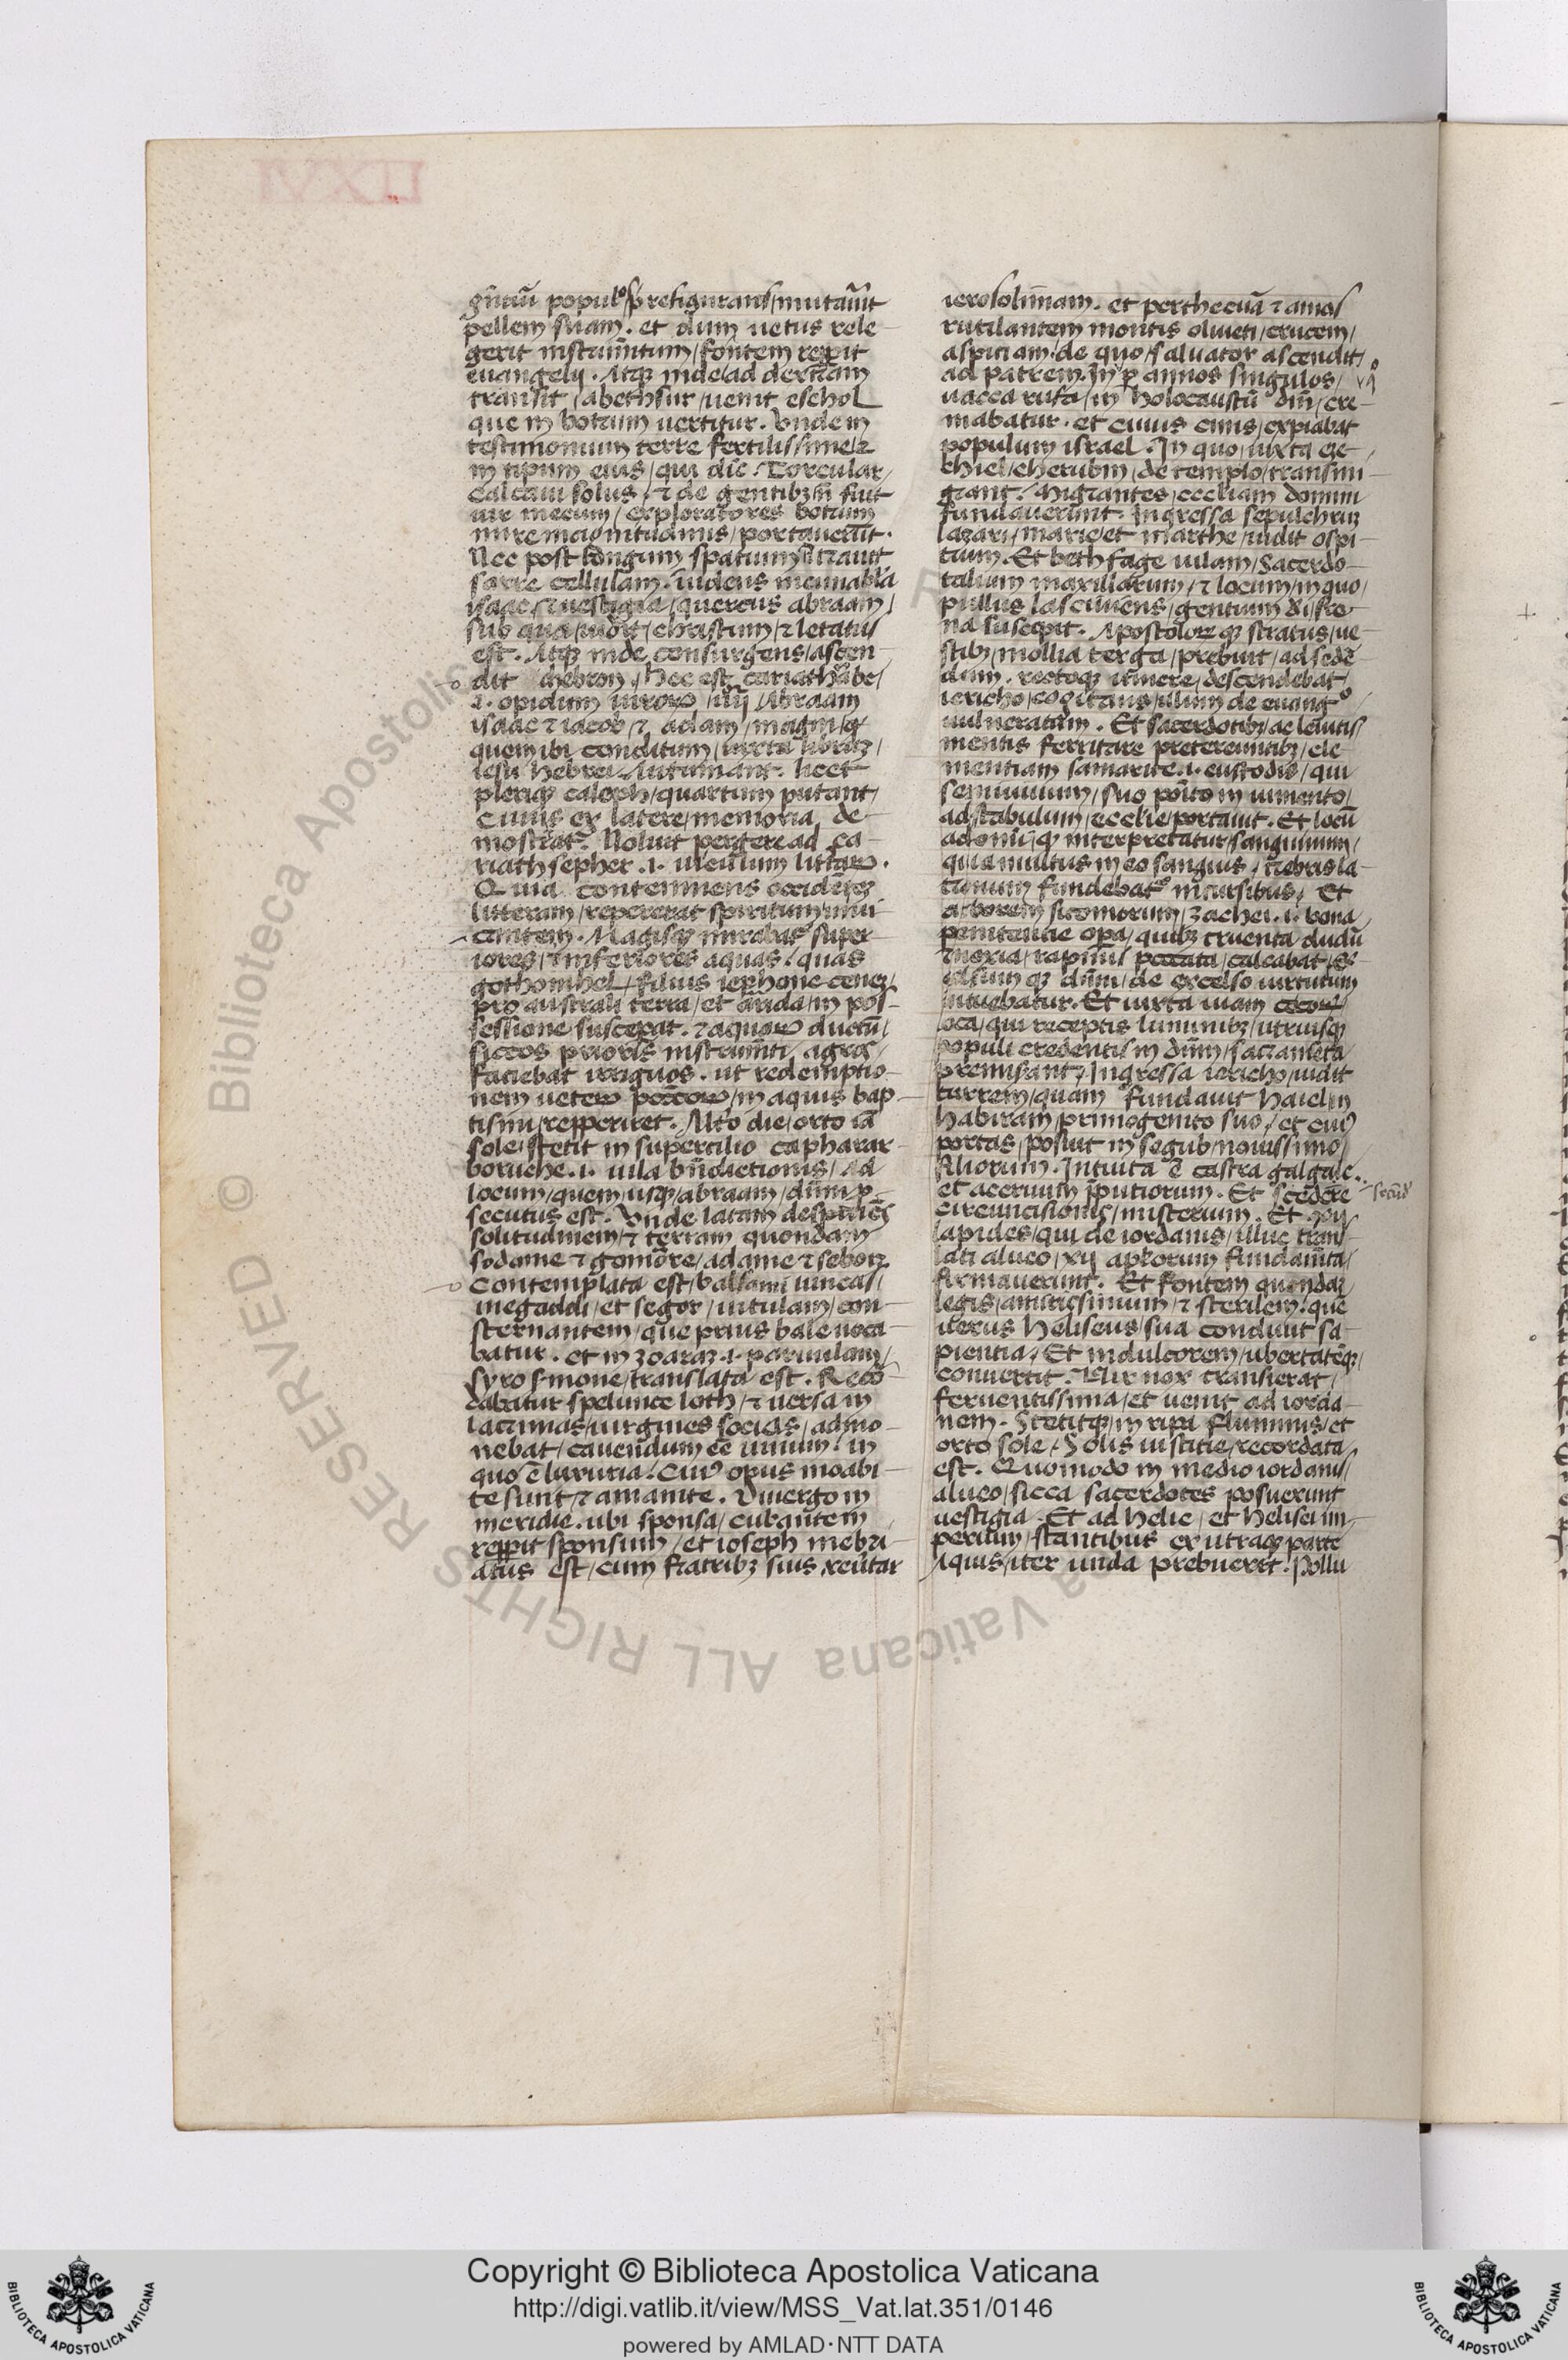 gentiū populos prefigurans/mutauit
pellem suam. et dum uetus rele-
gerit instrumētum/fontem reperit
euangelij. Atqȝ inde/ad dexteram
transit/abethsur/uenit eschol
que in botrum uertitur. Vnde in
testimonium terre fertilissime/&
in tipum eius/qui dic̄. Torcular/
calcaui solus/& de gentibȝ n̄ fuit
uir mecum/exploratores botrum
mire magnitudinis/portauerūt.
Nec post longum spatium/intrauit
sarre cellulam. uidens incunabula
isaac/& uestigia/quercus abraam/
sub qua/uidit/christum/& letatus
est. Atqȝ inde consurgens/ascen-
dit chebron. Hec est cariatharbe/
.i. opidum uiroꝝ iiij Abraam
isaac & iacob/& adam/magni/q̄
quem ibi conditum/iuxta librū
iesu hebrei Autumant. licet
pleriqȝ caleph/quartum putant/
Cuius ex latere/memoria de-
mostrat᷑. Noluit pergere ad ca-
riath sepher .i. uiculum litteraꝝ.
Quia contemnens occidētē
litteram/repererat spiritum/uiui-
cantem. Magisqȝ mirabat᷑ super-
iores/& inferiores aquas/quas
gothonihel/filius iephone cenez/
pro australi terra/et arida/in pos-
sessione susceperat. & aquaꝝ ductū/
siccos prioris instrumēti/agros/
faciebat irriguos. ut redemptio-
nem ueterū peccatoꝝ/in aquis bap-
tismi/repperiret. Alt᷑o die/orto iā
sole/stetit in supercilio capharar
boruche .i. uila bn̄dictionis/Ad
locum/quem/usqȝ/abraam/dn̄m ꝑ
secutus est. Vnde latam despiciēs
solitudinem/& terram quondam
sodome & gomorre/adame & sebom
Contemplata est/balsami uineas/
inegaddi/et segor/uitulam/con-
sternantem/que prius bale uoca-
batur. et in zoaraȝ .i. paruulam/
syro sermone/translata est. Recō-
dabatur spelunce loth/& uersa in
lacrimas/uirgines socias/admo-
nebat/cauendum ēē uinum/in
quo ē luxuria/Cui᷑ opus moabi-
te sunt/& amanite. Diuergo in
meridie. ubi sponsa/cubantem
repperit sponsum/et ioseph inebri-
atus est/cum fratribȝ suis reuertar
ierosolimam. et per thecuā & amos
rutilantem montis oliueti/crucem/
aspiciam/de quo/saluator ascendit/
ad patrem. In q̊ ꝑ annos singulos/
uacca rufa/in holocaustū dn̄i/cre-
mabatur. et cuius cinis/expiabat
populum israel. In quo/iuxta eze-
chiel/cherubin/de templo/transmi-
grant/Migrantes/eccl̄iam domini
fundauerunt. Ingressa sepulchrum
lazari/marie/et marthe/uidit ospi-
tium. Et bethfage uilam/Sacerdo-
talium maxillarum/& locum/in quo/
pullus lasciuiens/gentium di/fre-
na suscepit. Apostoloꝝqȝ stratus/ue-
stibȝ/mollia terga/prebuit/ad sedē-
dum. rectoqȝ itinere/descendebat/
iericho/cogitans/illum de euangᵒ/
uulneratum. Et sacerdotibȝ/ac leuitis/
mentis ferritate pretereuntibȝ/cle-
mentiam samarite .i. custodis/qui
seminiuum/suo posito in iumento/
ad stabulum/ecclēie/portauit. Et locū
adomī/qȝ interpretatur/sanguinum/
quia multus in eo sanguis/crebris la-
tronum fundebat᷑ incursibus/Et
arborem sicomorum/zachei .i. bona
penitentie opa/quibȝ cruenta dudū
& noxia/rapinis peccata/calcabat/ex-
celsumqȝ dn̄m/de excelso uirtutum
intuebatur. Et iuxta uiam cecoꝝ
loca/qui receptis luminibȝ/utriusqȝ
populi credentis in dn̄m/sacramēta
premiserant. Ingressa iericho/uidit
turrem/quam fundauit haiel/in
habiram/primogenito suo/et eui᷑
portas/posuit in segub/nouissimo/
filiorum. Intuita ē castra galgale..
et aceruum p̄putiorum. Et scedēre secūd̄
circuncisionis/misterium. Et xij
lapides/qui de iordanis/illuc tran-
lati alueo/xij apl̄orum fundamēta/
firmauerunt. Et fontem quondam
legis/amarissimum/& sterilem/que
uerus heliseus/sua condiuit sa-
pientia/Et indulcorem/ubertatēqȝ/
conuertit. Vix nox transierat/
feruentissima/et uenit ad iorda-
nem. Stetitqȝ/in ripa fluminis/et
orto sole/Solis iustitie/recordata/
est. Quomodo in medio iordanis/
alueo/sicca sacerdotes posuerunt
uestigia. Et ad helie/et helisei im-
perium/stantibus ex utraqȝ parte
Aquis/iter unda prebuerit. Pollu
Copyright © Biblioteca Apostolica Vaticana
http://digi.vatlib.it/view/MSS_Vat.lat.351/0146
powered by AMLAD·NTT DATA
BIBLIOTECA APOSTOLICA VATICANA
BIBLIOTECA APOSTOLICA VATICANA